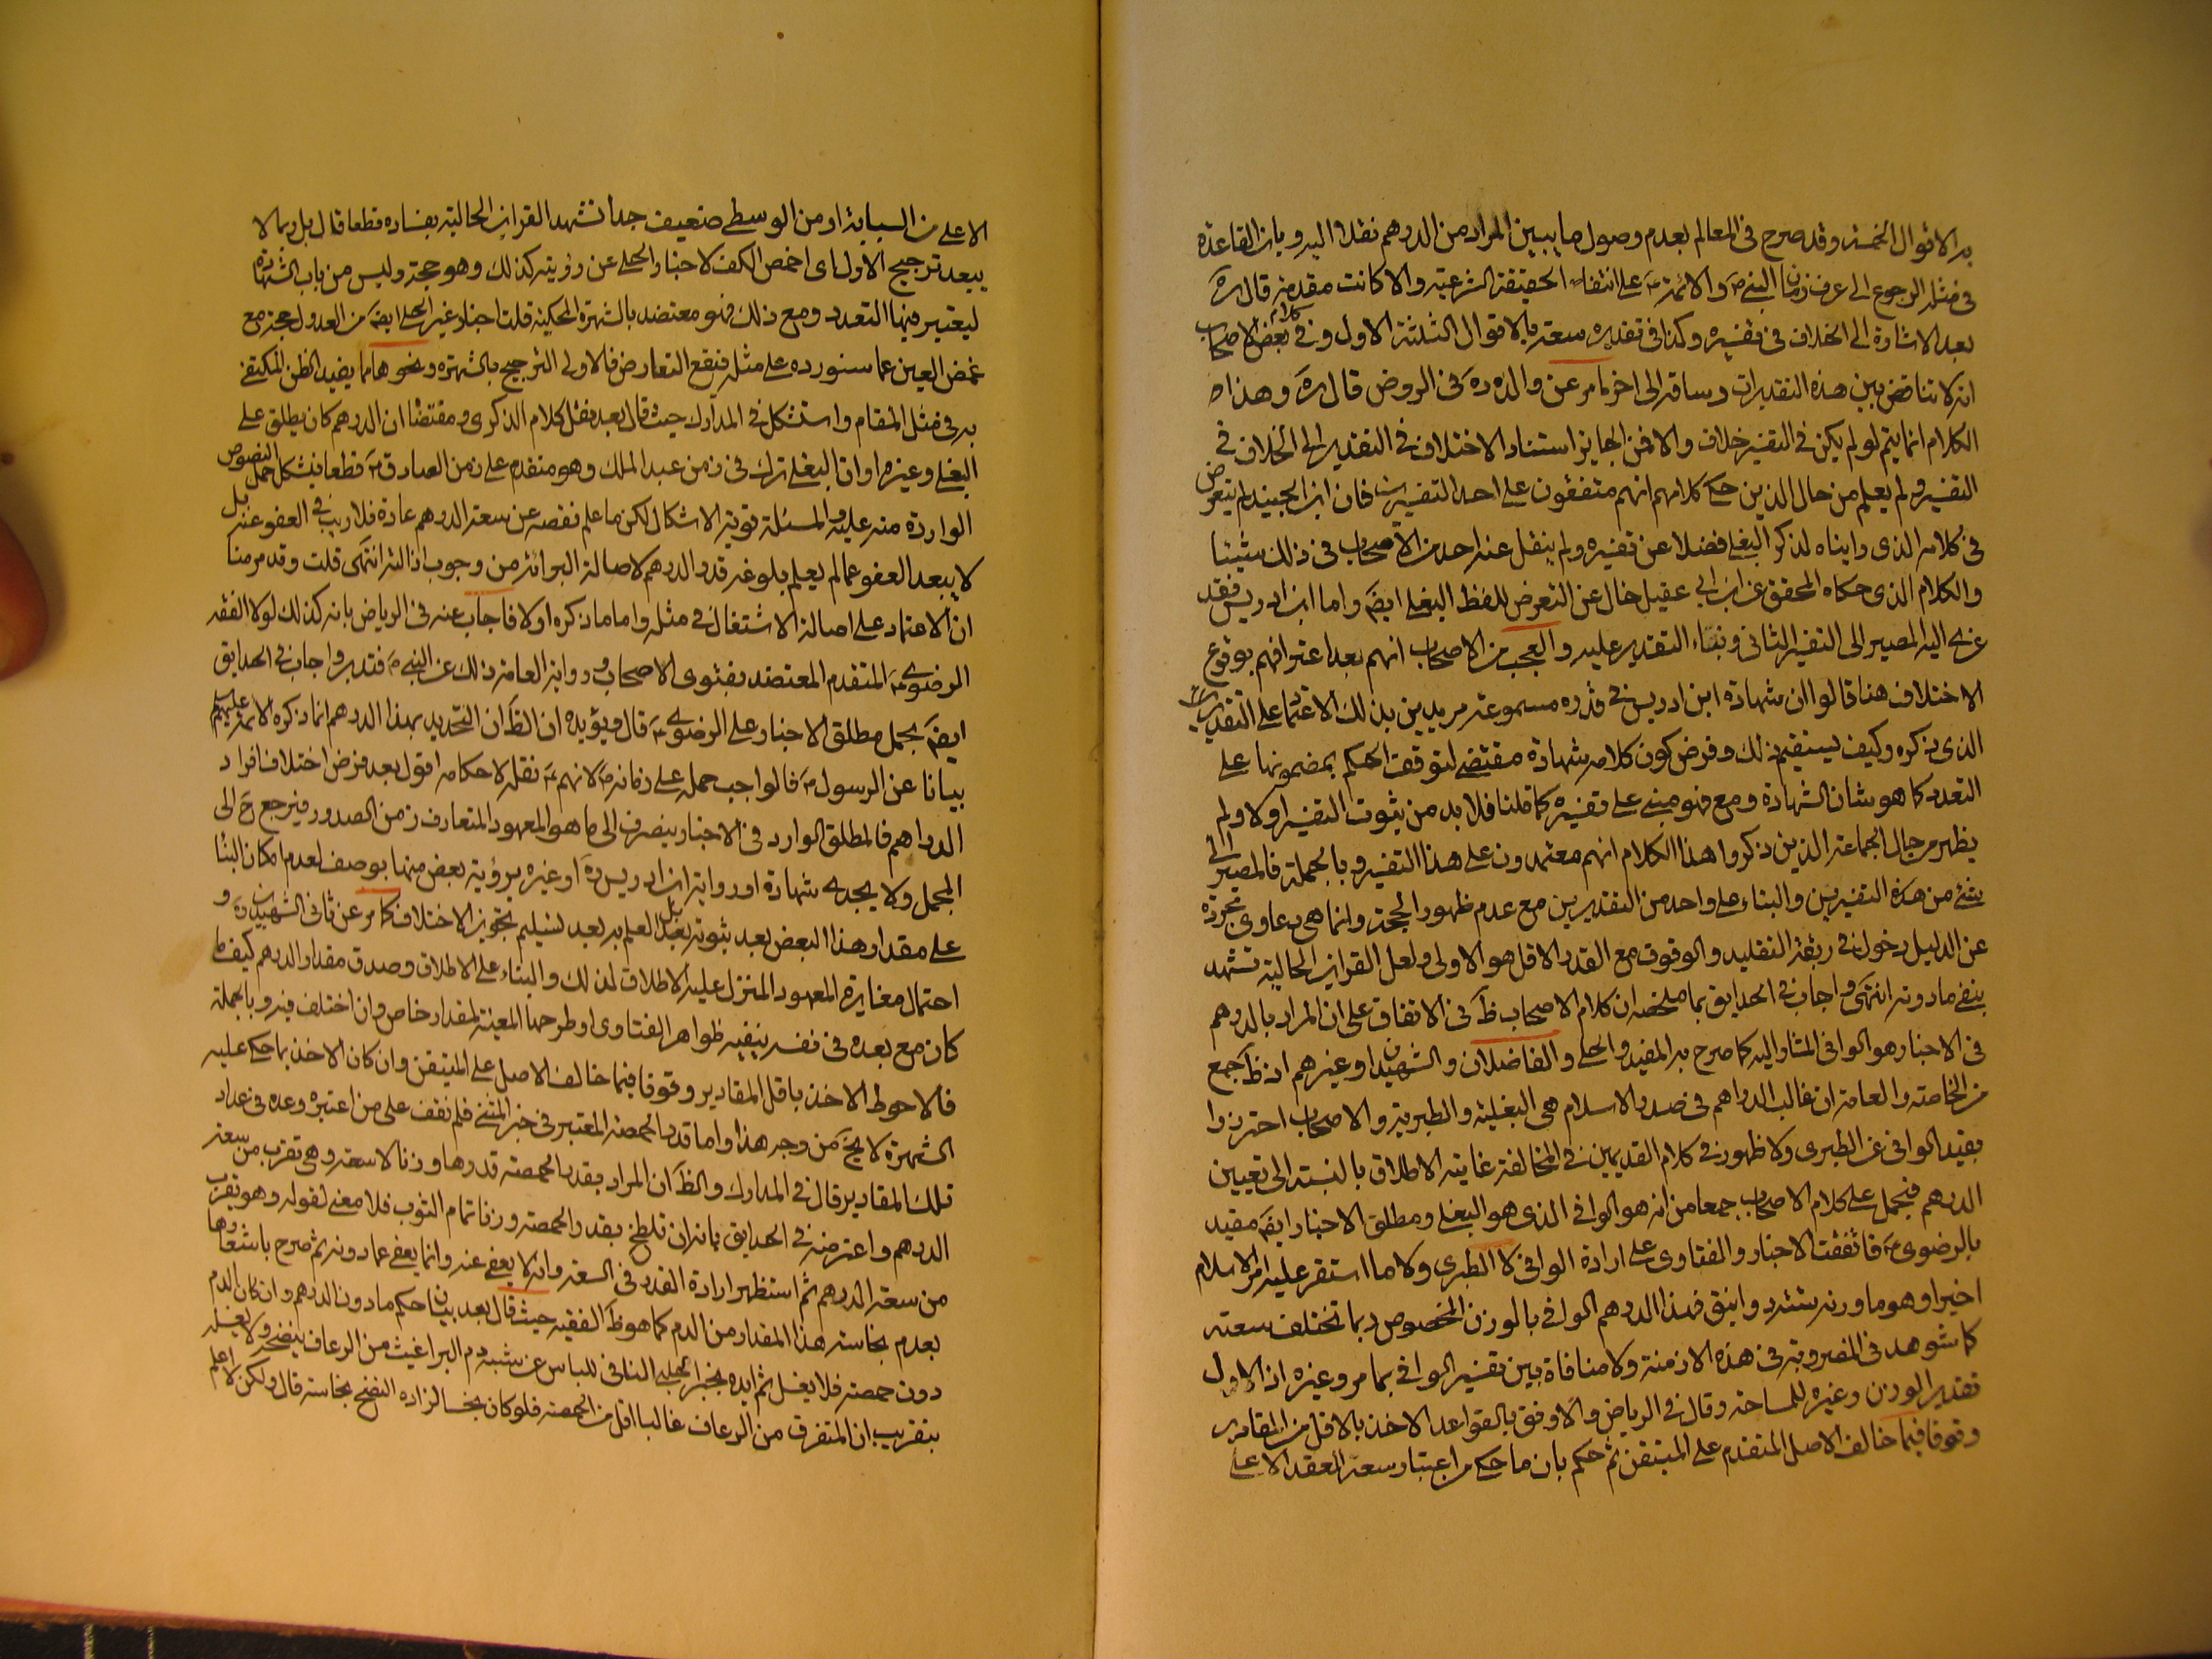 به الاقوال الخمسة وقد صرح فى المعالم بعدم وصول ما يبين المراد من الدرهم نقلا اليه وبان القاعدة
فى مثله الرجوع الى عرف زمان النبى ص والائمة ع على انتفاء الحقيقة الشرعية والا كانت مقدمة قال ره
بعد الاشارة الى الخلاف فى تفسيره وكذا فى تقديره سعته بالاقوال الثلثة الاول وفى كلام بعض الاصحاب
انه لا تناقض بين هذه التقديرات وساقه الى اخر ما مر عن والده ره فى الروض قال ره وهذا
الكلام انما يتم لو لم يكن فى التفسير خلاف والا فمن الجايز استناد الاختلاف فى التقدير الى الخلاف فى
التفسير ولم يعلم من حال الذين حكى كلامهم انهم متفقون على احد التفسيرين فان ابن الجنيد لم يتعرض
فى كلامه الذى رايناه لذكر البغلى فضلا عن تفسيره ولم ينقل عنه احد من الاصحاب فى ذلك شيئا
والكلام الذى حكاه المحقق عن ابن ابى عقيل خال عن التعرض للفظ البغلى ايضا واما ابن ادريس فقد
عزى اليه المصير الى التفسير الثانى وبناء التقدير عليه والعجب من الاصحاب انهم بعد اعترافهم بوقوع
الاختلاف هنا قالوا ان شهادة ابن ادريس فى قدره مسموعة مريدين بذلك الاعتماد على التقدير
الذى ذكره وكيف يستقيم ذلك وفرض كون كلامه شهادة مقتضى لتوقف الحكم بمضمونها على
التعدد كما هو شان الشهادة ومع فهو مبنى على تفسيره كما قلنا فلا بد من ثبوت التفسير اولا ولم
يظهر من حال الجماعة الذين ذكروا هذا الكلام انهم معتمدون على هذا التفسير وبالجملة فالمصير الى
شئ من هذه التفسيرين والبناء على واحد من التقديرين مع عدم ظهور الحجة وانما هى دعاوى مجردة
عن الدليل دخول فى ربقة التقليد والوقوف مع القدر الاقل هو الاولى ولعل القراين الحالية تشهد
بنفى ما دونه انتهى واجاب فى الحدايق بما ملخصه ان كلام الاصحاب ظ فى الاتفاق على ان المراد بالدرهم
فى الاخبار وهو الوافى المشار اليه كما صرح به المفيد والحلى والفاضلان والشهيدان وغيرهم اذ ظ جمع
من الخاصة والعامة ان غالب الدراهم فى صدر الاسلام هى البغلية والطبرية والاصحاب احترزوا
بقيد الوافى عن الطبرى ولا ظهور فى كلام القديمين فى المخالفة غايته الاطلاق بالنسبة الى تعيين
الدرهم فيحمل على كلام الاصحاب جمعا من انه هو الوافى الذى هو البغلى ومطلق الاخبار ايضا مقيد
بالرضوى ع فاتفقت الاخبار والفتاوى على ارادة الوافى لا الطبرى ولا ما استقر عليه امر الاسلام
اخيرا وهو ما وزنه ستة دوانيق فهذا الدرهم الوافى بالوزن المخصوص ربما تختلف سعته
كما شوهد فى المضروبة فى هذه الازمنة ولا منافاة بين تفسير الوافى بما مر وغيره اذ الاول
تقدير الوزن وغيره للمساحة وقال فى الرياض والاوفق بالقواعد الاخذ بالاقل من المقادير
وقوفا فيما خالف الاصل المتقدم على المتيقن ثم حكم بان ما حكى من اعتبار سعة العقد الاعلى
الاعلى من السبابة او من الوسطى ضعيف جدا تشهد القراين الحالية بفساده قطعا قال بل ربما لا
يبعد ترجيح الاول اى اخمص الكف لاخبار الحلى عن رؤيته كذلك وهو حجة وليس من باب الشهادة
ليعتبر فيها التعدد ومع ذلك فهو معتضد بالشهرة المحكية قلت اخبار غير الحلى ايضا من العدول حجة مع
غمض العين عما سنورده على مثله فيقع التعارض فالاولى الترجيح بالشهرة ونحوها مما يفيد الظن المكتفى
به فى مثل المقام واستشكل فى المدارك حيث قال بعد نقل كلام الذكرى ومقتضاه ان الدرهم كان يطلق على
البغلى وغيره وان البغلى ترك فى زمن عبد الملك وهو متقدم على زمن الصادق ع قطعا فيشكل حمل النصوص
الواردة منه عليه والمسئلة قوية الاشكال لكن ما علم نقصه عن سعة الدرهم عادة فلا ريب فى العفو عنه بل
لا يبعد العفو عما لم يعلم بلوغه قدر الدرهم لاصالة البرائة من وجوب ازالته انتهى قلت وقد مر منا
ان الاعتماد على اصالة الاشتغال فى مثله واما ما ذكره اولا فاجاب عنه فى الرياض بانه كذلك لولا الفقه
الرضوى ع المتقدم المعتضد بفتوى الاصحاب ورواية العامة ذلك عن النبى ص فتدبر واجاب فى الحدايق
ايضا بحمل مطلق الاخبار على الرضوى ع قال ويؤيده ان الظ ان التحديد بهذا الدرهم انما ذكره الائمة عليهم السلام
بيانا عن الرسول ص فالواجب حمله على زمانه ص لانهم ع نقلة لاحكامه اقول بعد فرض اختلاف افراد
الدراهم فالمطلق الوارد فى الاخبار ينصرف الى ما هو المعهود المتعارف زمن الصدور فيرجع ح الى
المجمل ولا يجدى شهادة او رواية ابن ادريس ره او غيره برؤية بعض منها بوصف لعدم امكان البناء
على مقدار هذا البعض بعد ثبوته بل بعد العلم به بعد تسليم تجويز الاختلاف كما مر عن ثانى الشهيدين ره و
احتمال مغايرة المعهود المنزل عليه الاطلاق لذلك والبناء على الاطلاق وصدق مقدار الدرهم كيف ما
كان مع بعده فى نفسه ينفيه ظواهر الفتاوى او طرحها المعينة لمقدار خاص وان اختلف فيه وبالجملة
فالاحوط الاخذ باقل المقادير وقوفا فيما خالف الاصل على المتيقن وان كان الاخذ بما حكى عليه
الشهرة لا يخ من وجه هذا واما قدر الحمصة المعتبر فى خبر المثنى فلم نقف على من اعتبره وعده فى عداد
تلك المقادير قال فى المدارك والظ ان المراد بقدر الحمصة قدرها وزنا لا سعة وهى تقرب من سعة
الدرهم واعترضه فى الحدايق بانه ان تلطخ بقدر الحمصة وزنا تمام الثوب فلا معنى لقوله وهو تقرب
من سعة الدرهم ثم استظهر ارادة القدر فى السعة وانه لا يعفى عنه وانما يعفى عما دونه ثم صرح باشعارها
بعدم نجاسة هذا المقدار من الدم كما هو ظ الفقيه حيث قال بعد بيان حكم ما دون الدرهم وان كان الدم
دون حمصة فلا يغسل ثم ايده بخبر الحلبى النافى للباس عن شبه دم البراغيث من الرعاف ينضحه ولا يغسله
بتقريب ان المتفرق من الرعاف غالبا اقل من الحمصة فلو كان نجسا لزاده النضح نجاسة قال ولكن لا اعلم